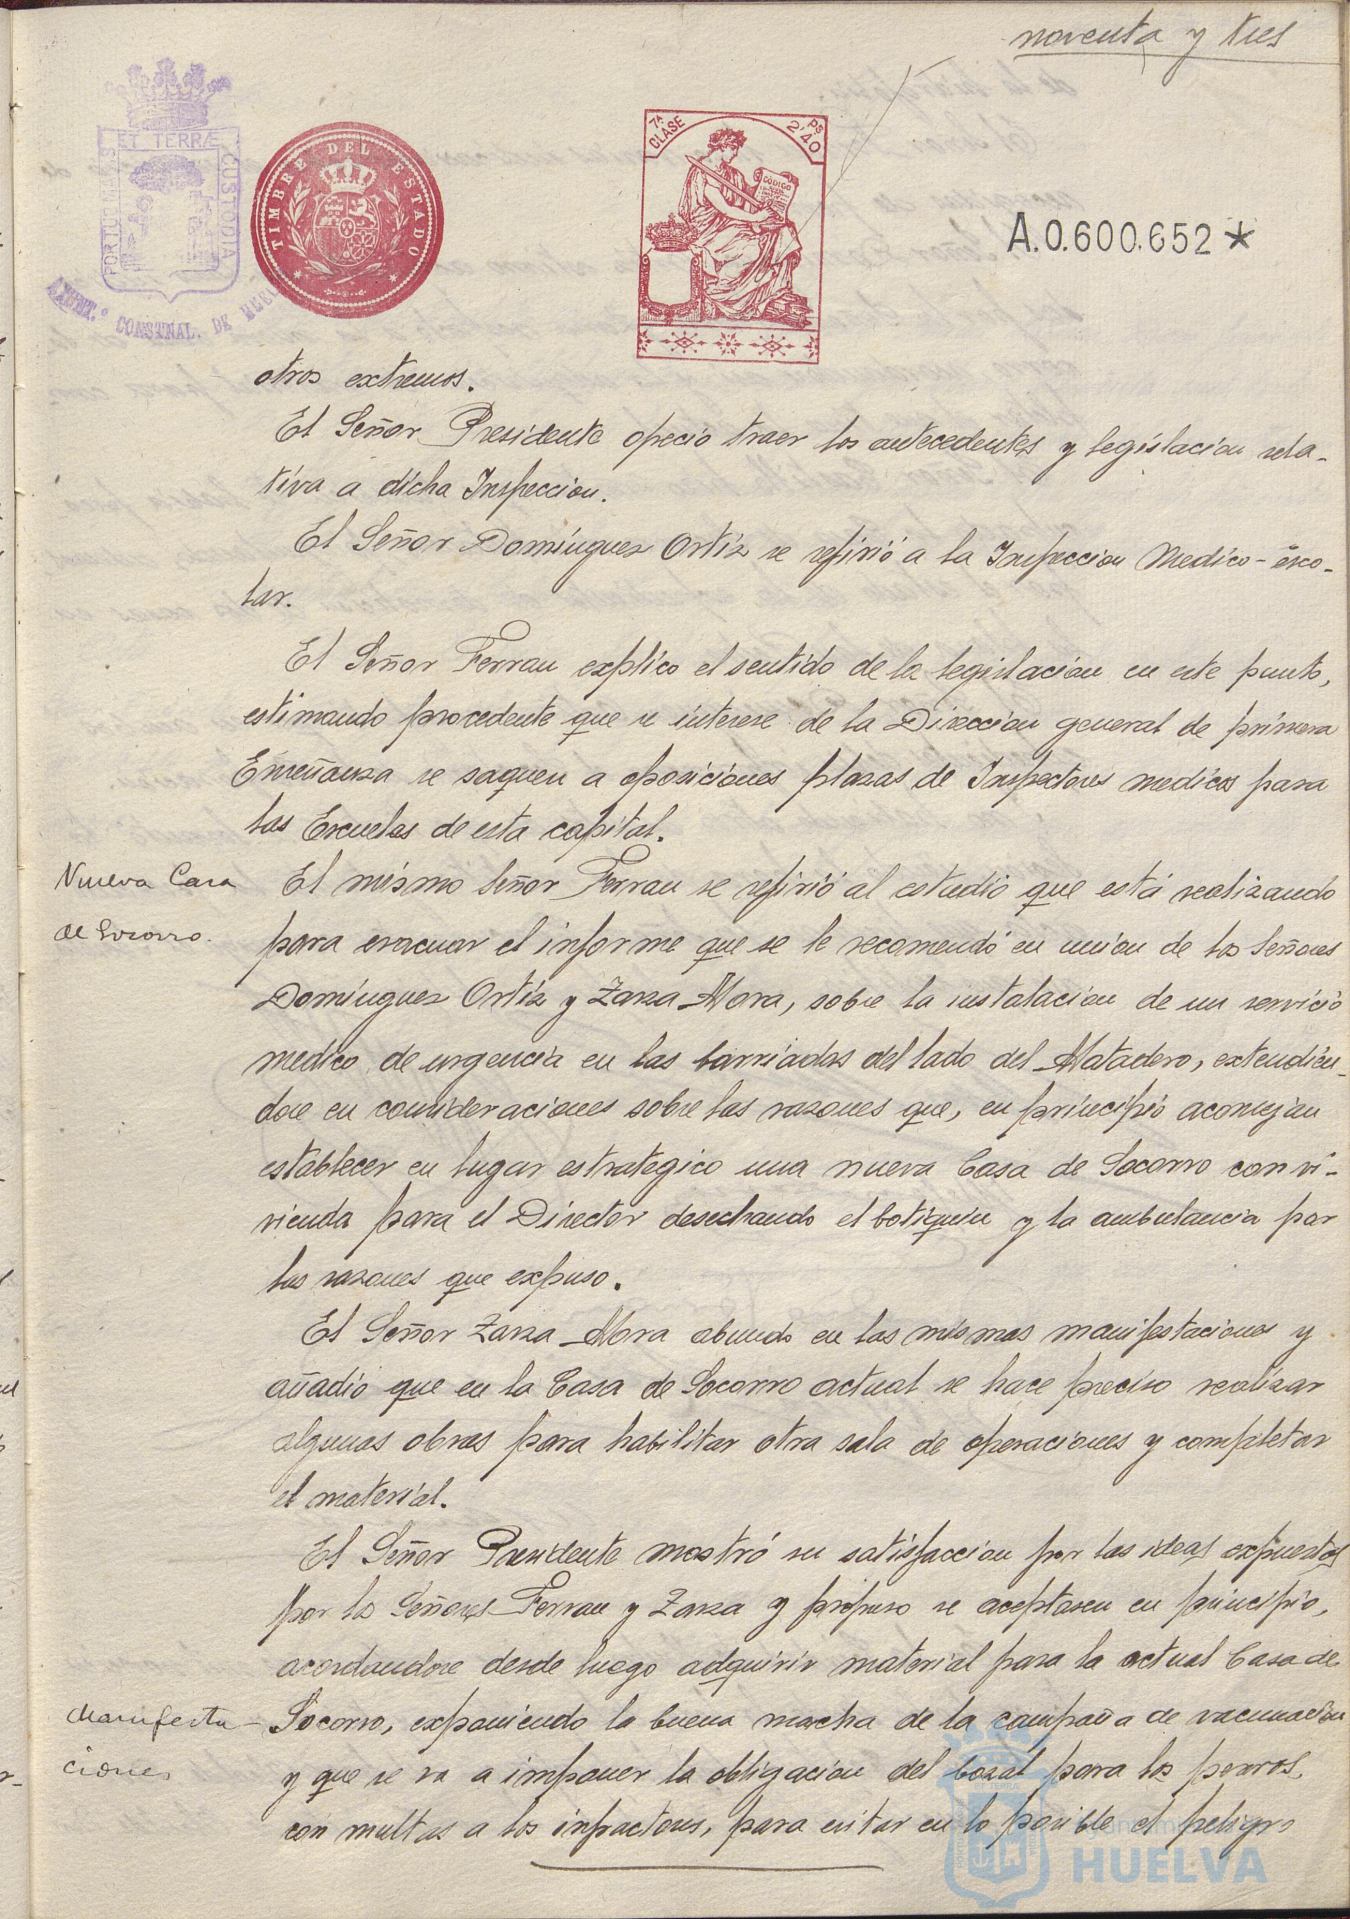 noventa y tres
PORTUS MARIS
ET TERRÆ
CUSTODIA
AYUNT.º CONSTNAL. DE
TIMBRE DEL ESTADO
7ª CLASE
2'40 Ps
CÓDIGO
A.0.600.652*
otros extremos.
El Señor Presidente opecio traer los antecedentes y legislacion rela-
tiva a dicha Inspeccion.
El Señor Dominguez Ortiz se refirió a la Inspeccion Medico-esco-
lar.
El Señor Terrau explico el sentido de la legislacion en este punto,
estimando procedente que se interese de la Direccion general de primera
Enseñanza se saquen a oposiciones plazas de Inspectores medicos para
las Escuelas de esta capital.
Nueva Casa
de Socorro.
El mismo Señor Terrau se refirió al estudio que está realizando
para evacuar el informe que se le recomendó en union de los Señores
Dominguez Ortiz y Zarza Mora, sobre la instalacion de un servicio
medico de urgencia en las barriadas del lado del Matadero, extendien-
dose en consideraciones sobre las razones que, en principio aconsejan
establecer en lugar estrategico una nueva Casa de Socorro con vi-
vienda para el Director desechando el botiquin y la ambulancia por
las razones que expuso.
El Señor Zarza Mora abundo en las mismas manifestaciones y
añadio que en la Casa de Socorro actual se hace preciso realizar
algunas obras para habilitar otra sala de operaciones y completar
el material.
El Señor Presidente mostró su satisfaccion por las ideas expuestas
por los Señores Terrau y Zarza y propuso se aceptasen en principio,
acordandose desde luego adquirir material para la actual Casa de
Manifesta-
ciones
Socorro, exponiendo la buena marcha de la campaña de vacunacion
y que se va a imponer la obligacion del bozal para los perros,
con multas a los infractores, para evitar en lo posible el peligro
HUELVA